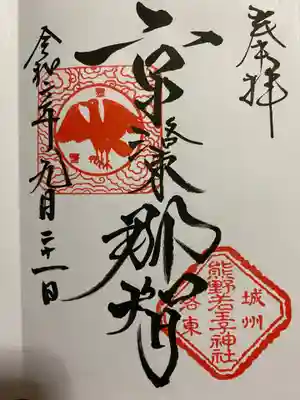 奉拝
京洛東
那智
城州
熊野若王子神社
洛東
令和三年九月二十一日